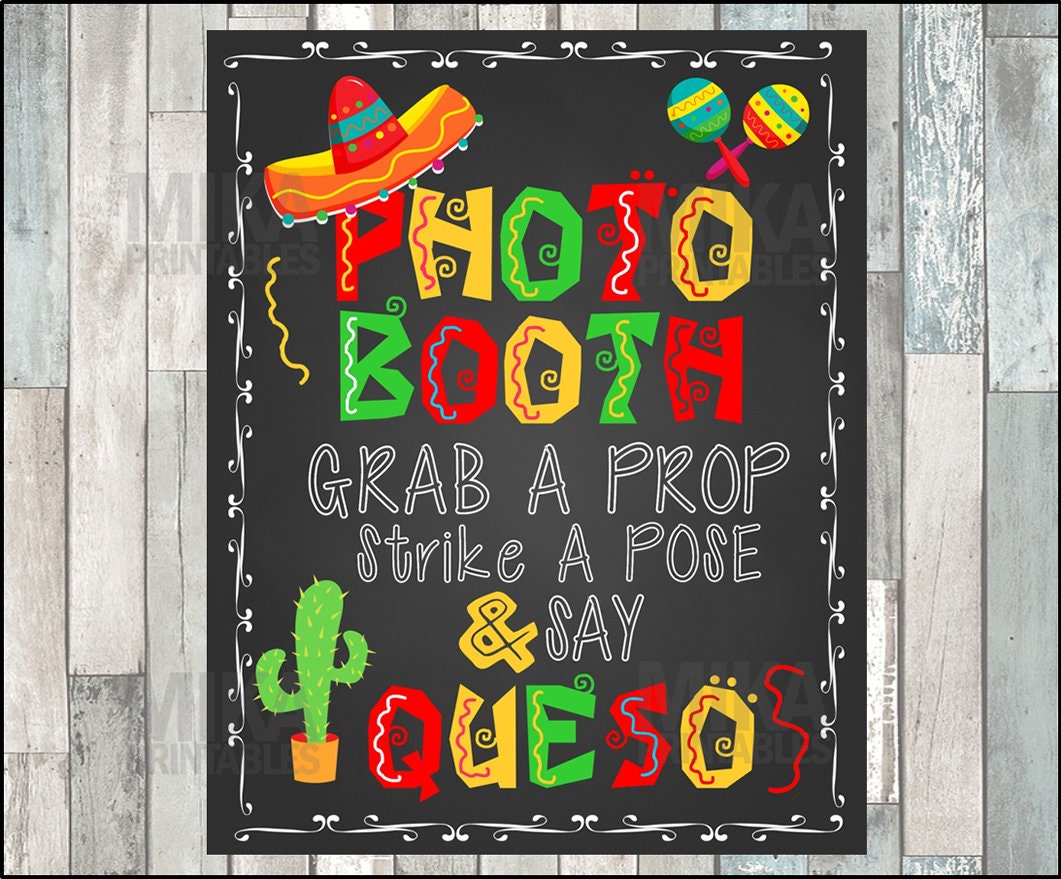 PHOTO
BOOTH
GRAB A PROP
Strike A POSE
& SAY
QUESO
MIKA
PRINTABLES
MIKA
PRINTABLES
MIKA
PRINTABLES
MIKA
PRINTABLES